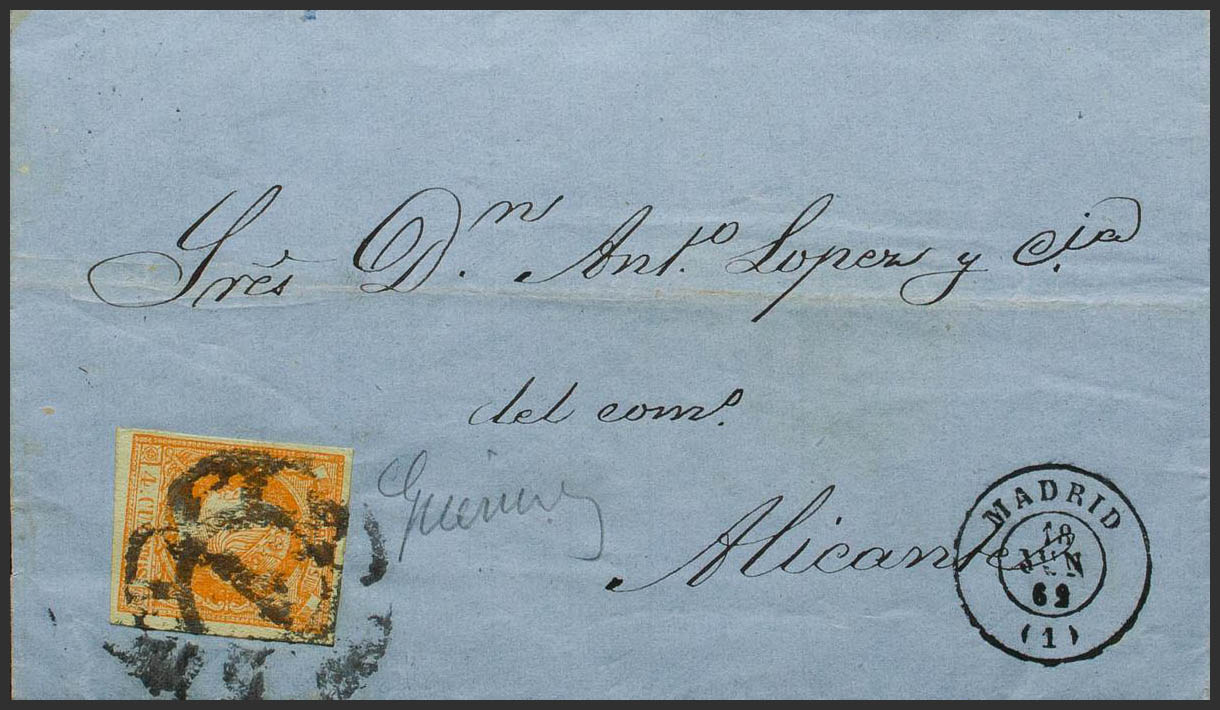 Srẽs Dⁿ. Antº. Lopez y Cia
del comº.
Alicante
MADRID
18
JUN
62
(1)